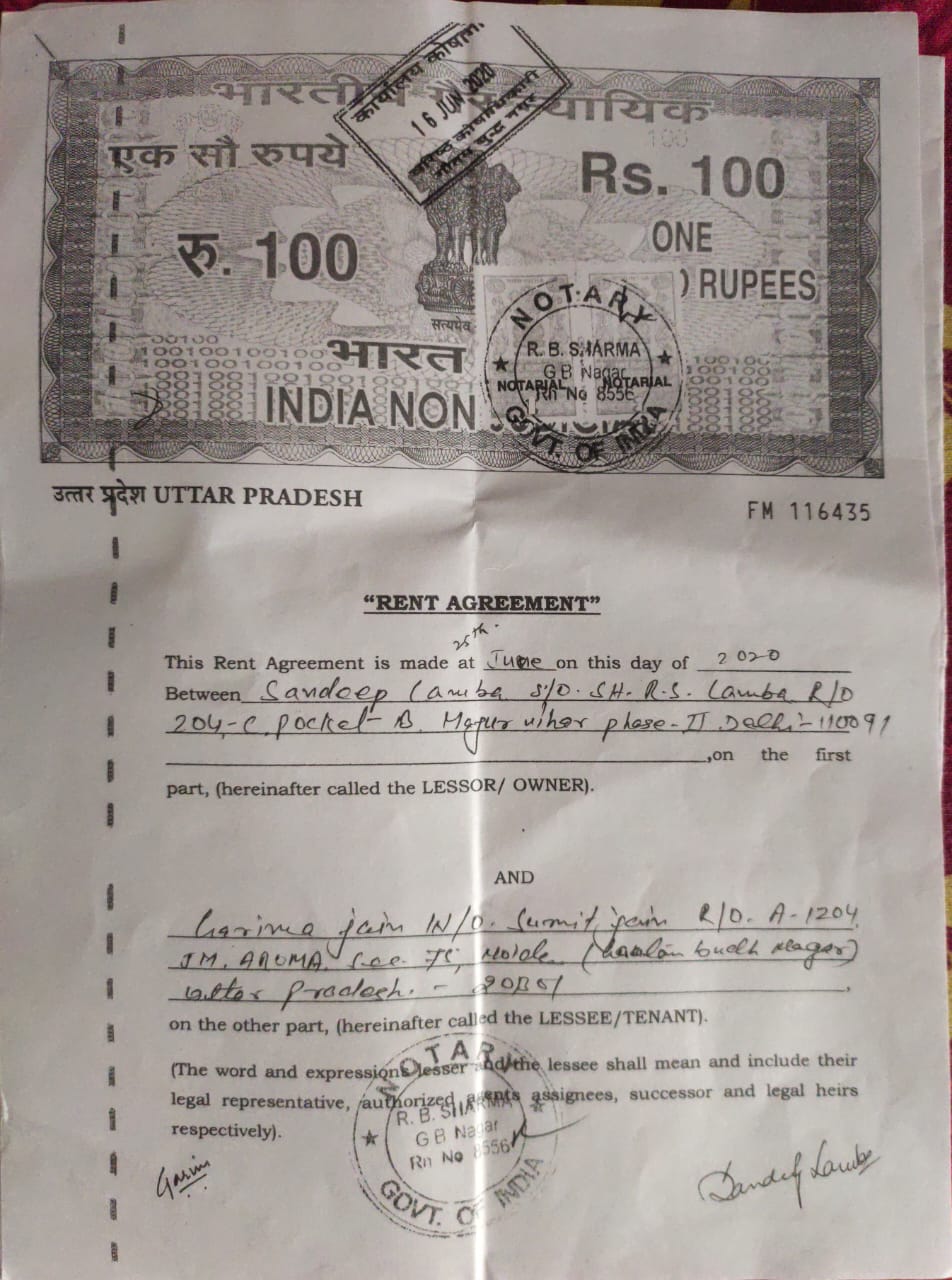 भारतीय गैर न्यायिक
कार्यालय कोषागार
16 JUN 2020
वरिष्ठ कोषाधिकारी
गौतम बुद्ध नगर
100
एक सौ रुपये
Rs. 100
रु. 100
ONE
) RUPEES
सत्यमेव
भारत
INDIA NON
NOTARY
R. B. SHARMA
G B Nagar
NOTARIAL NOTARIAL
Rn No 8556
GOVT. OF INDIA
उत्तर प्रदेश UTTAR PRADESH
FM 116435
“RENT AGREEMENT”
25th
This Rent Agreement is made at June on this day of 2020
Between Sandeep Lamba S/O. SH. R.S. Lamba R/O
204-C Pocket-B. Mayur vihar phase-II Delhi-110091
,on the first
part, (hereinafter called the LESSOR/ OWNER).
AND
Garima jain W/O. Sumit jain R/O. A-1204
JM, AROMA, Sec. 75, Noida (Gautam budh Nagar)
Uttar Pradesh. -
on the other part, (hereinafter called the LESSEE/TENANT).
(The word and expression lesser and the lessee shall mean and include their
legal representative, authorized agents assignees, successor and legal heirs
respectively).
NOTARY
R. B. SHARMA
G B Nagar
Rn No 8556
GOVT. OF INDIA
Garima
Sandeep Lamba